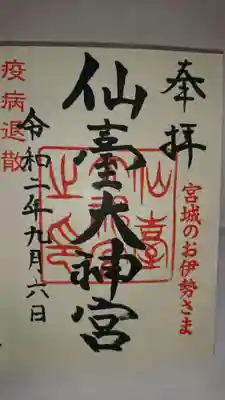 奉拝
宮城のお伊勢さま
仙臺大神宮
仙臺
令和二年九月六日
疫病退散